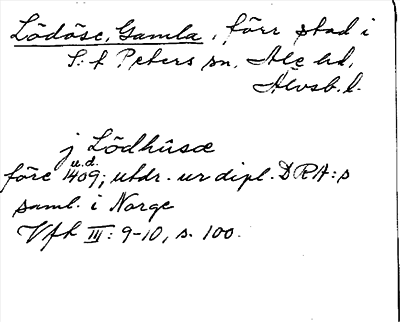 Lödöse, Gamla, förr stad i
S:t Peters sn, Ale hd,
Älvsb. l.
j Lödhûsæ
u.d.
före 1409; utdr. ur dipl. DRA:s
saml. i Norge
Vfh III: 9-10, s. 100.